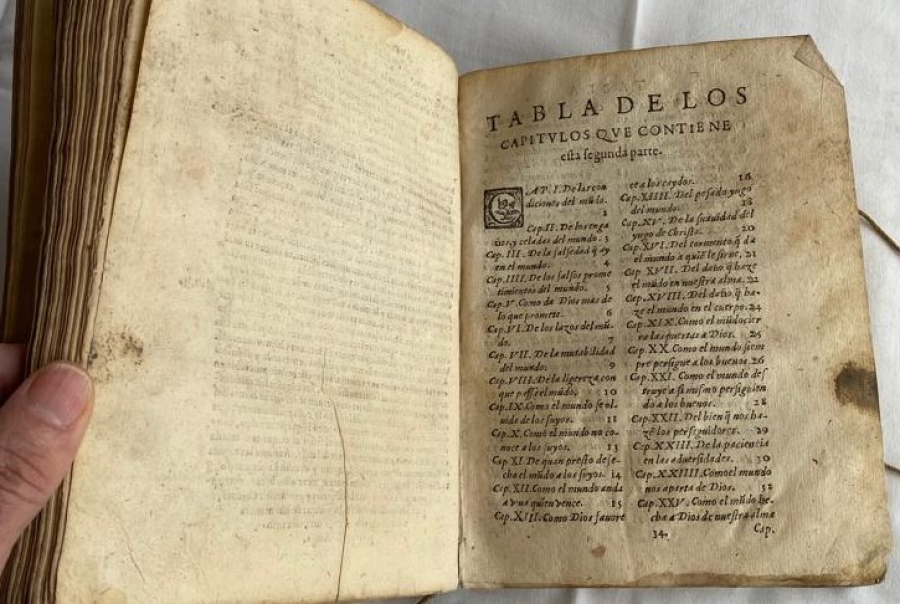 TABLA DE LOS
CAPITVLOS QVE CONTIENE
esta segunda parte.
CAP. I. De las con
diciones del mūdo.
1
Cap. II. De los enga
ños y celadas del mundo. 3
Cap. III. De la falsedad q̃ ay
en el mundo. 4
Cap. IIII. De los falsos prome
timientos del mundo. 5
Cap. V. Como da Dios mas de
lo que promete. 6
Cap. VI. De los lazos del mū-
do. 7
Cap. VII. De la mutabilidad
del mundo. 9
Cap. VIII. De la ligereza con
que passa el mūdo. 10
Cap. IX. Como el mundo se ol-
uida de los suyos. 11
Cap. X. Como el mundo no co-
noce a los suyos. 13
Cap. XI. De quan presto dese-
cha el mūdo a los suyos. 14
Cap. XII. Como el mundo anda
a viua quien vence. 15
Cap. XIII. Como Dios fauore
ce a los caydos. 16
Cap. XIIII. Del pesado yugo
del mundo. 18
Cap. XV. De la suauidad del
yugo de Christo. 20
Cap. XVI. Del tormento q̃ da
el mundo a quiē le sirue. 21
Cap. XVII. Del daño q̃ haze
el mūdo en nuestra alma. 22
Cap. XVIII. Del daño q̃ ha-
ze el mundo en el cuerpo. 24
Cap. XIX. Como el mūdo cier
ra las puertas a Dios. 25
Cap. XX. Como el mundo siem
pre persigue a los buenos. 26
Cap. XXI. Como el mundo des
truye a si mismo persiguien
do a los buenos. 28
Cap. XXII. Del bien q̃ nos ha-
zē los perseguidores. 29
Cap. XXIII. De la paciencia
en las aduersidades. 30
Cap. XXIIII. Como el mundo
nos aparta de Dios. 32
Cap. XXV. Como el mūdo he-
cha a Dios de nuestra alma
34.
Cap.